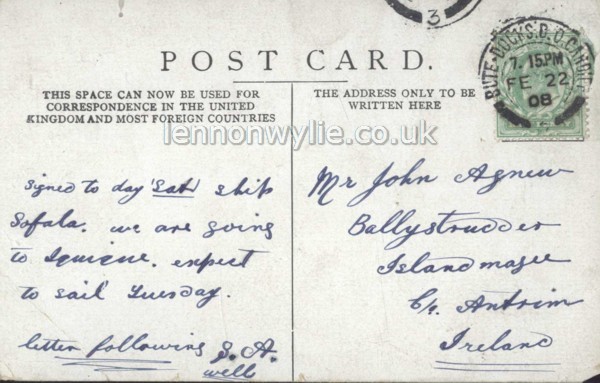 3
BUTE-DOCKS.D.O.CARDIFF
7.15PM
FE 22
08
POST CARD.
THIS SPACE CAN NOW BE USED FOR
CORRESPONDENCE IN THE UNITED
KINGDOM AND MOST FOREIGN COUNTRIES
THE ADDRESS ONLY TO BE
WRITTEN HERE
lennonwylie.co.uk
Signed to day Sat ship
Sofala. we are going
to Iquique. expect
to sail Tuesday.
letter following S. A.
well
Mr John Agnew
Ballystrudder
Islandmagee
C/o. Antrim
Ireland